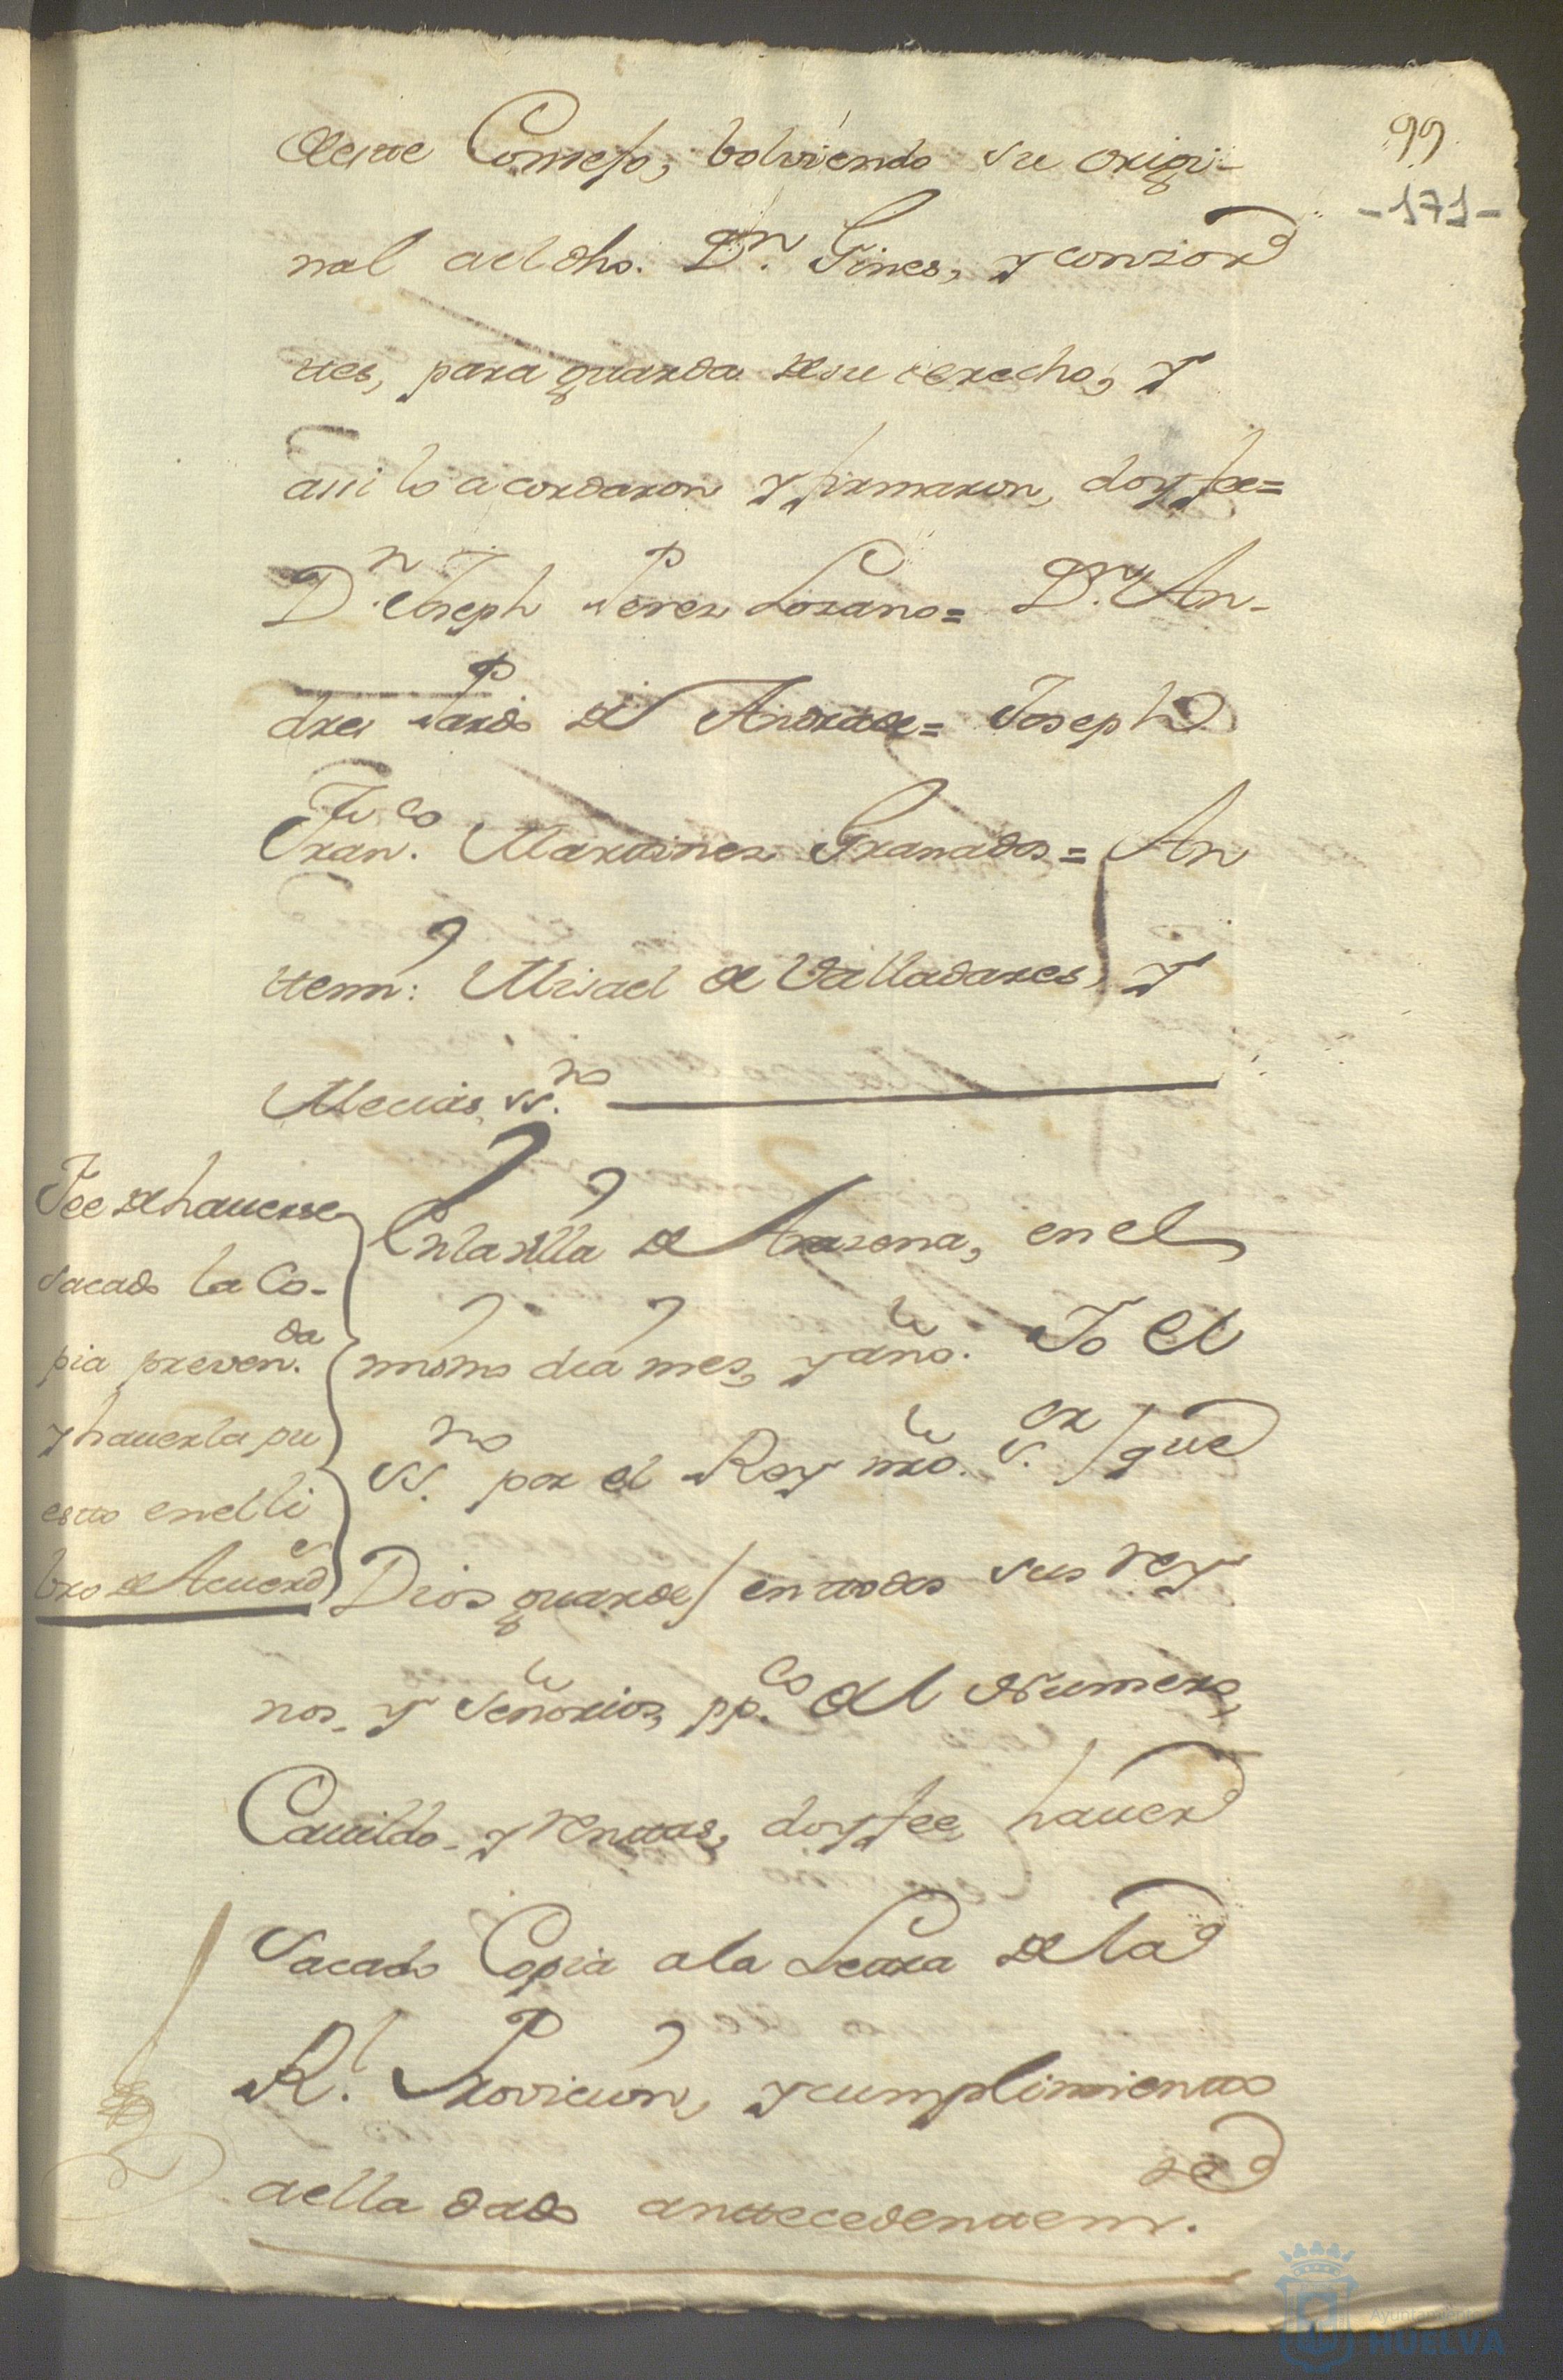 99
-171-
deste Consejo, bolviendo su origi-
nal a el dho. Dn. Gines, y consor
ttes, para guarda de su derecho, y
assi lo acordaron y firmaron, doy fee=
Dn. Joseph Perez Lozano= Dn. An-
dres Pardo de Andrade= Joseph
Franco. Martinez Granados= An
ttemi: Misael de Valladares, y
Mecias, ssno.
Fee de hauerse
sacado la Co-
pia prevenda.
y hauerla pu
estto en el li
bro de Acuerdos
En la villa de Arazena, en el
mismo dia mes, y año. Yo el
ssno. por el Rey nro. sor. / que
Dios guarde / en todos sus rey
nos, y señorios, ppco. del Numero,
Cauildo, y renttas, doy fee hauer
sacado Copia a la Letra de la
Rl. Provicion, y cumplimientto
a ella dado anttecedentem.te
Ayuntamiento
HUELVA